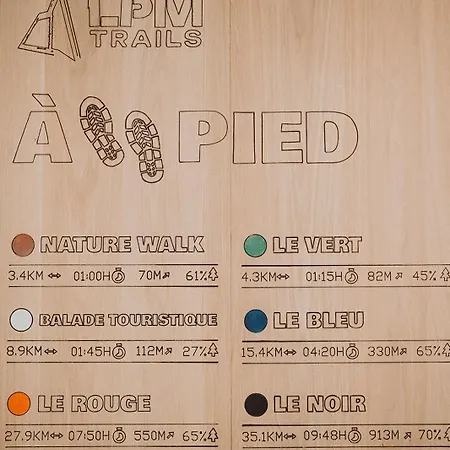 LPM
TRAILS
À PIED
NATURE WALK
3.4KM 01:00H 70M 61%
BALADE TOURISTIQUE
8.9KM 01:45H 112M 27%
LE ROUGE
27.9KM 07:50H 550M 65%
LE VERT
4.3KM 01:15H 82M 45%
LE BLEU
15.4KM 04:20H 330M 65%
LE NOIR
35.1KM 09:48H 913M 70%